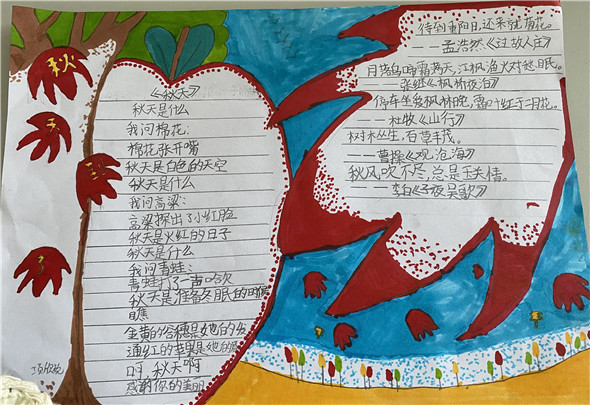 秋
《秋天》
秋天是什么
我问棉花：
棉花张开嘴
秋天是白色的天空
秋天是什么
我问高粱：
高粱探出了小红脸
秋天是火红的日子
秋天是什么
我问青蛙：
青蛙打了一声哈欠
秋天是准备冬眠的时候
金黄的谷穗是她的
通红的苹果是她的
啊，秋天啊
感谢你的美丽
待到重阳日，还来就菊花。
——孟浩然《过故人庄》
月落乌啼霜满天，江枫渔火对愁眠。
——张继《枫桥夜泊》
停车坐爱枫林晚，霜叶红于二月花。
——杜牧《山行》
树木丛生，百草丰茂。
——曹操《观沧海》
秋风吹不尽，总是玉关情。
——李白《子夜吴歌》